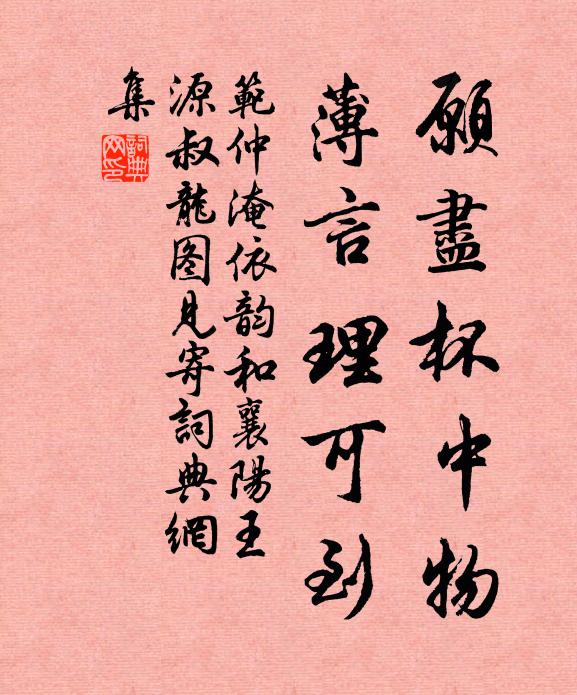 願盡杯中物
薄言理可到
範仲淹依韵和襄陽王
源叔龍图見寄詞典網
集
詞典
网印